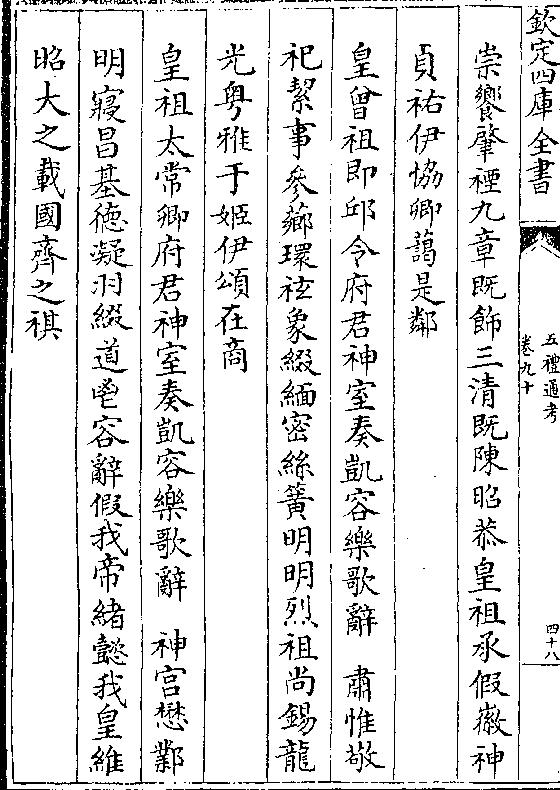 欽定四庫全書
五禮通考
卷九十
四十八
崇饗肇禋九章既飾三清既陳昭恭皇祖承假徽神
貞祐伊協卿藹是鄰
皇曾祖即邱令府君神室奏凱容樂歌辭　肅惟敬
祀絜事參薌環祛象綴緬密絲簧明明烈祖尚錫龍
光粤雅于姬伊頌在商
皇祖太常卿府君神室奏凱容樂歌辭　神宫懋鄴
明寢昌基徳凝羽綴道鬯容辭假我帝緒懿我皇維
昭大之載國齊之祺